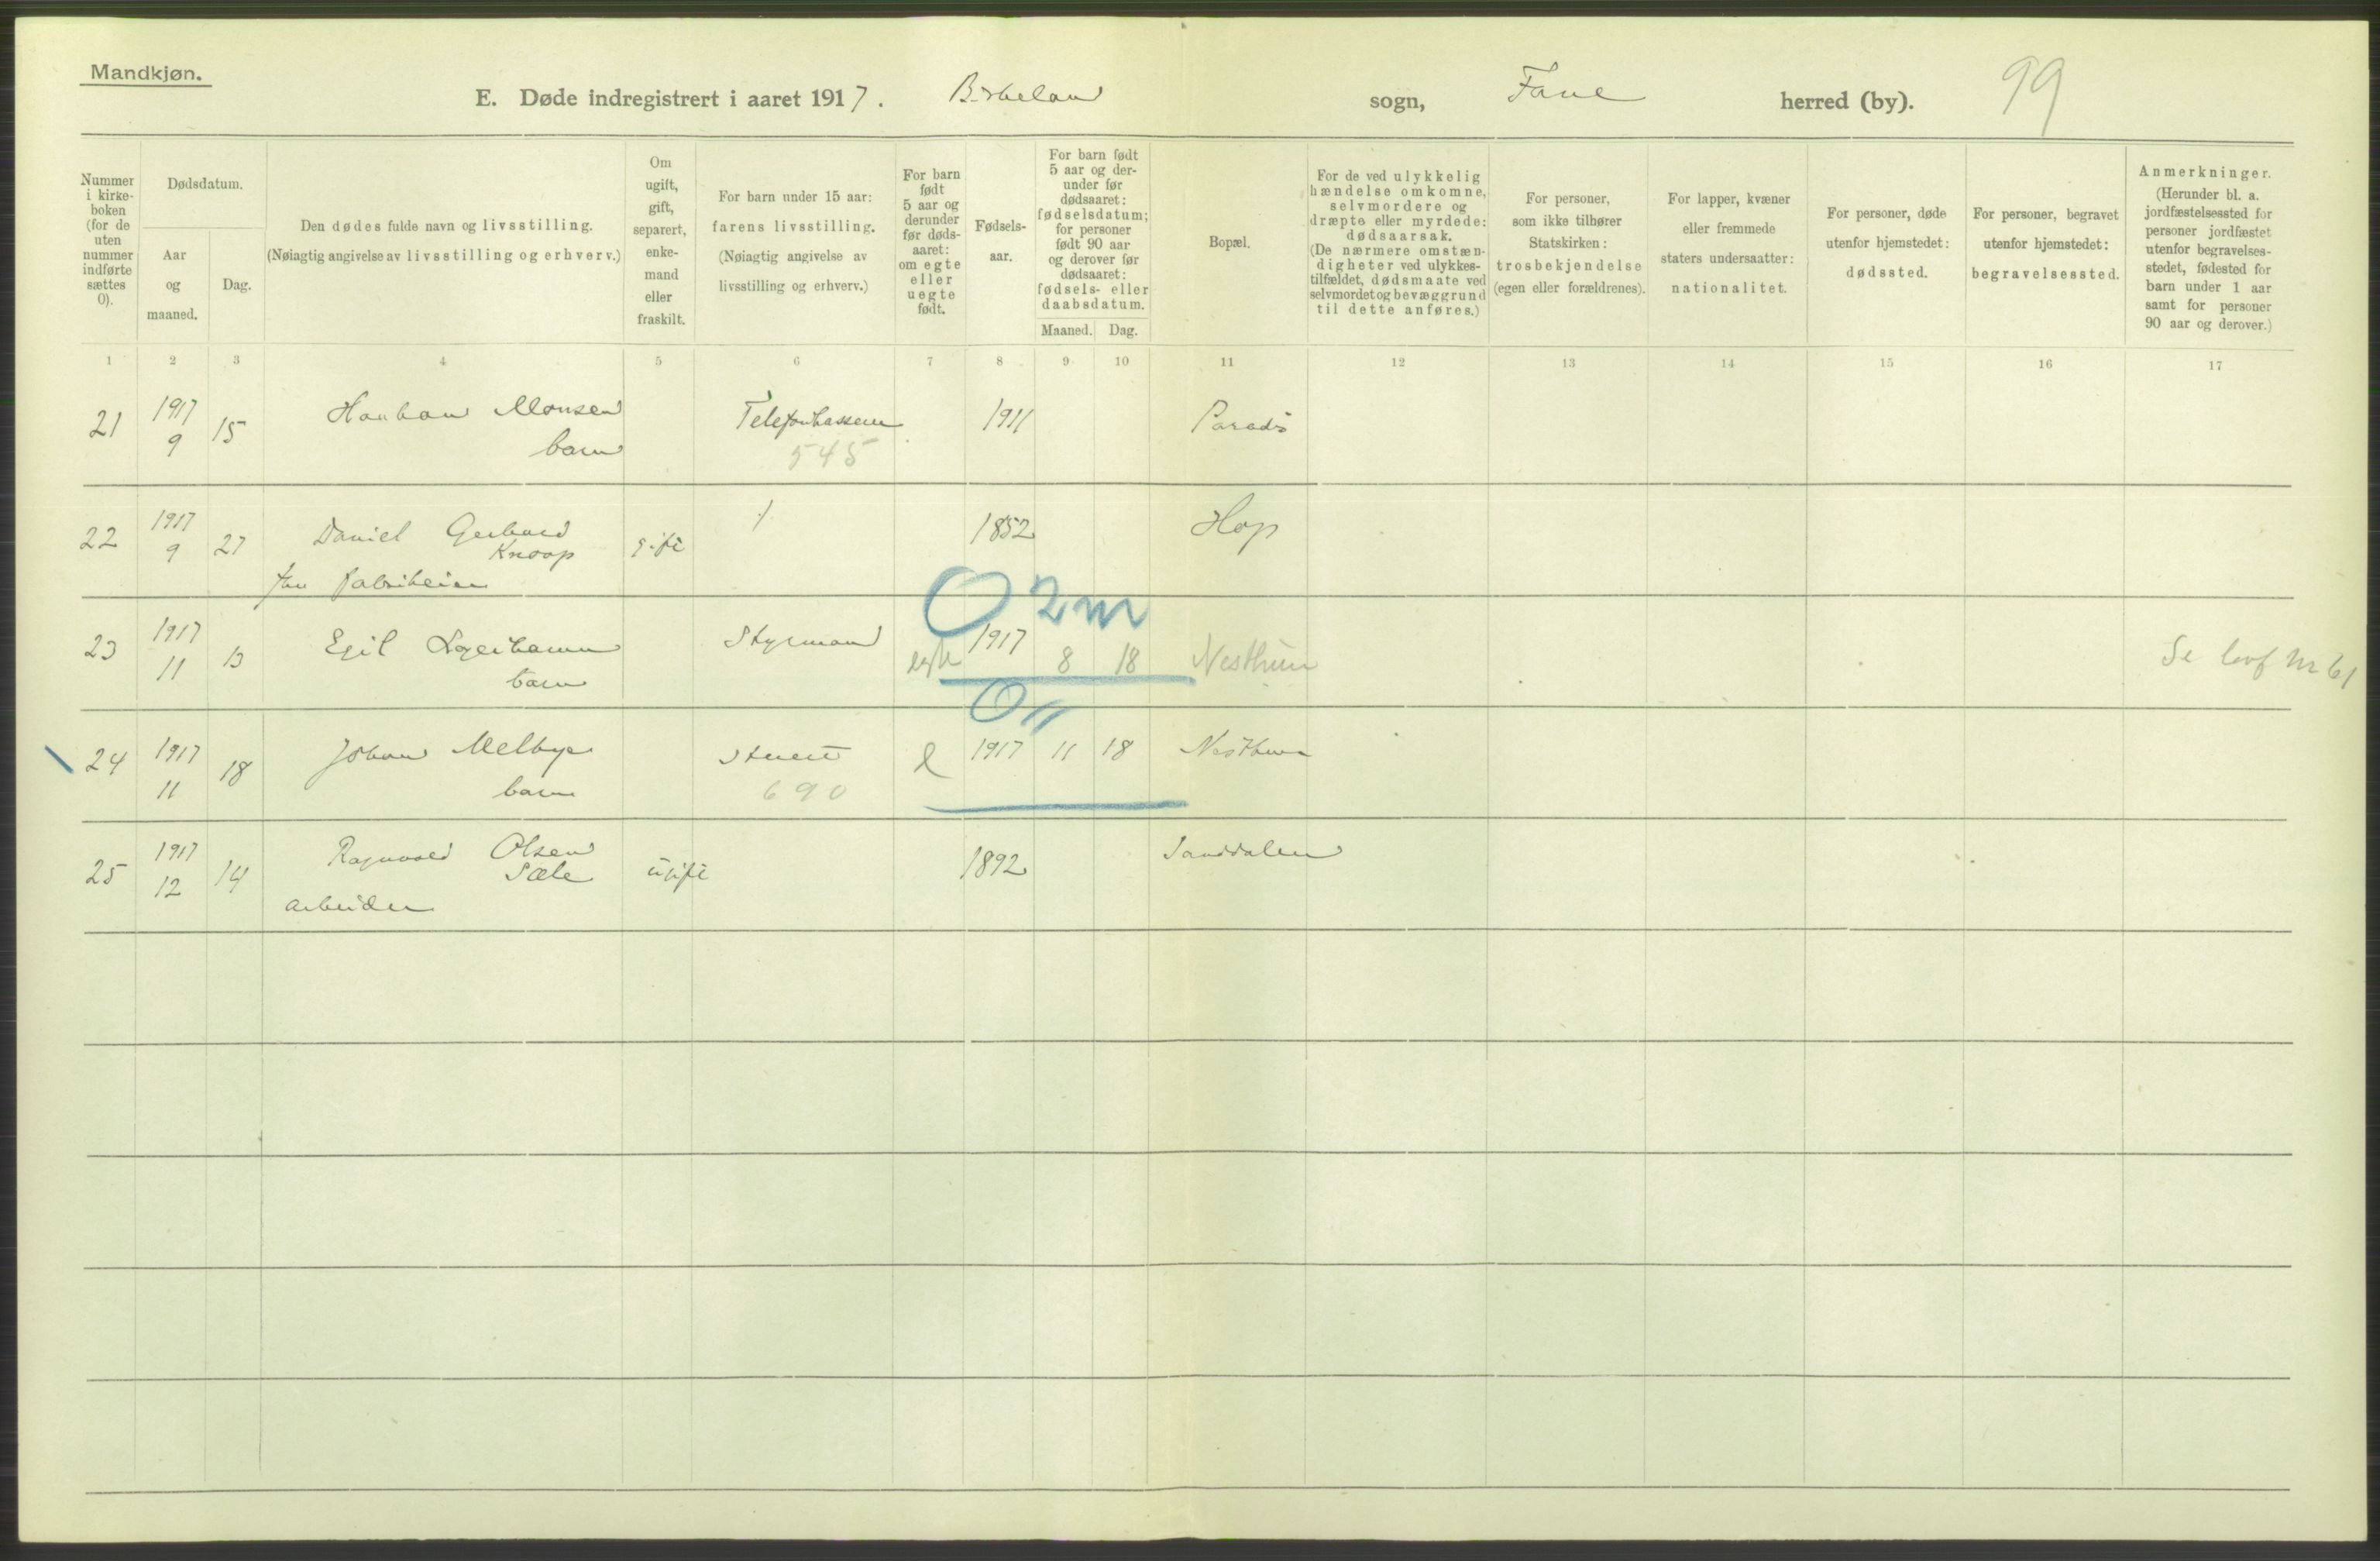 Mandkjøn.
E. Døde indregistrert i aaret 1917. Birkeland sogn, Fane herred (by). 99
Nummer i kirke-boken (for de uten nummer indførte sættes 0).
Dødsdatum.
Aar og maaned.
Dag.
Den dødes fulde navn og livsstilling.
(Nøiagtig angivelse av livsstilling og erhverv.)
Om ugift, gift, separert, enke-mand eller fraskilt.
For barn under 15 aar: farens livsstilling.
(Nøiagtig angivelse av livsstilling og erhverv.)
For barn født 5 aar og derunder før døds-aaret: om egte eller uegte født.
Fødsels-aar.
For barn født 5 aar og der-under før dødsaaret: fødselsdatum; for personer født 90 aar og derover før dødsaaret: fødsels- eller daabsdatum.
Maaned. Dag.
Bopæl.
For de ved ulykkelig hændelse omkomne, selvmordere og dræpte eller myrdede: dødsaarsak.
(De nærmere omstæn-digheter ved ulykkes-tilfældet, dødsmaate ved selvmordet og bevæggrund til dette anføres.)
For personer, som ikke tilhører Statskirken: trosbekjendelse (egen eller forældrenes).
For lapper, kvæner eller fremmede staters undersaatter: nationalitet.
For personer, døde utenfor hjemstedet: dødssted.
For personer, begravet utenfor hjemstedet: begravelsessted.
Anmerkninger.
(Herunder bl. a. jordfæstelsessted for personer jordfæstet utenfor begravelses-stedet, fødested for barn under 1 aar samt for personer 90 aar og derover.)
1 2 3 4 5 6 7 8 9 10 11 12 13 14 15 16 17
21 1917 9 15 Haakon Monsen Telefonkasserer 1911 Paradis
barn 545
22 1917 9 27 Daniel Gerhard gift 1852 Hop
Knoop
fhv fabrikeier
0 2 m
23 1917 11 13 Egil barn Styrmand egte 1917 8 18 Nesttun Se levf Nr 61
0
24 1917 11 18 Johan Melbye Stuert e 1917 11 18 Nesttun
barn 690
25 1917 12 14 Ragnvald Olsen ugift 1892 Sanddalen
Sæle
arbeider